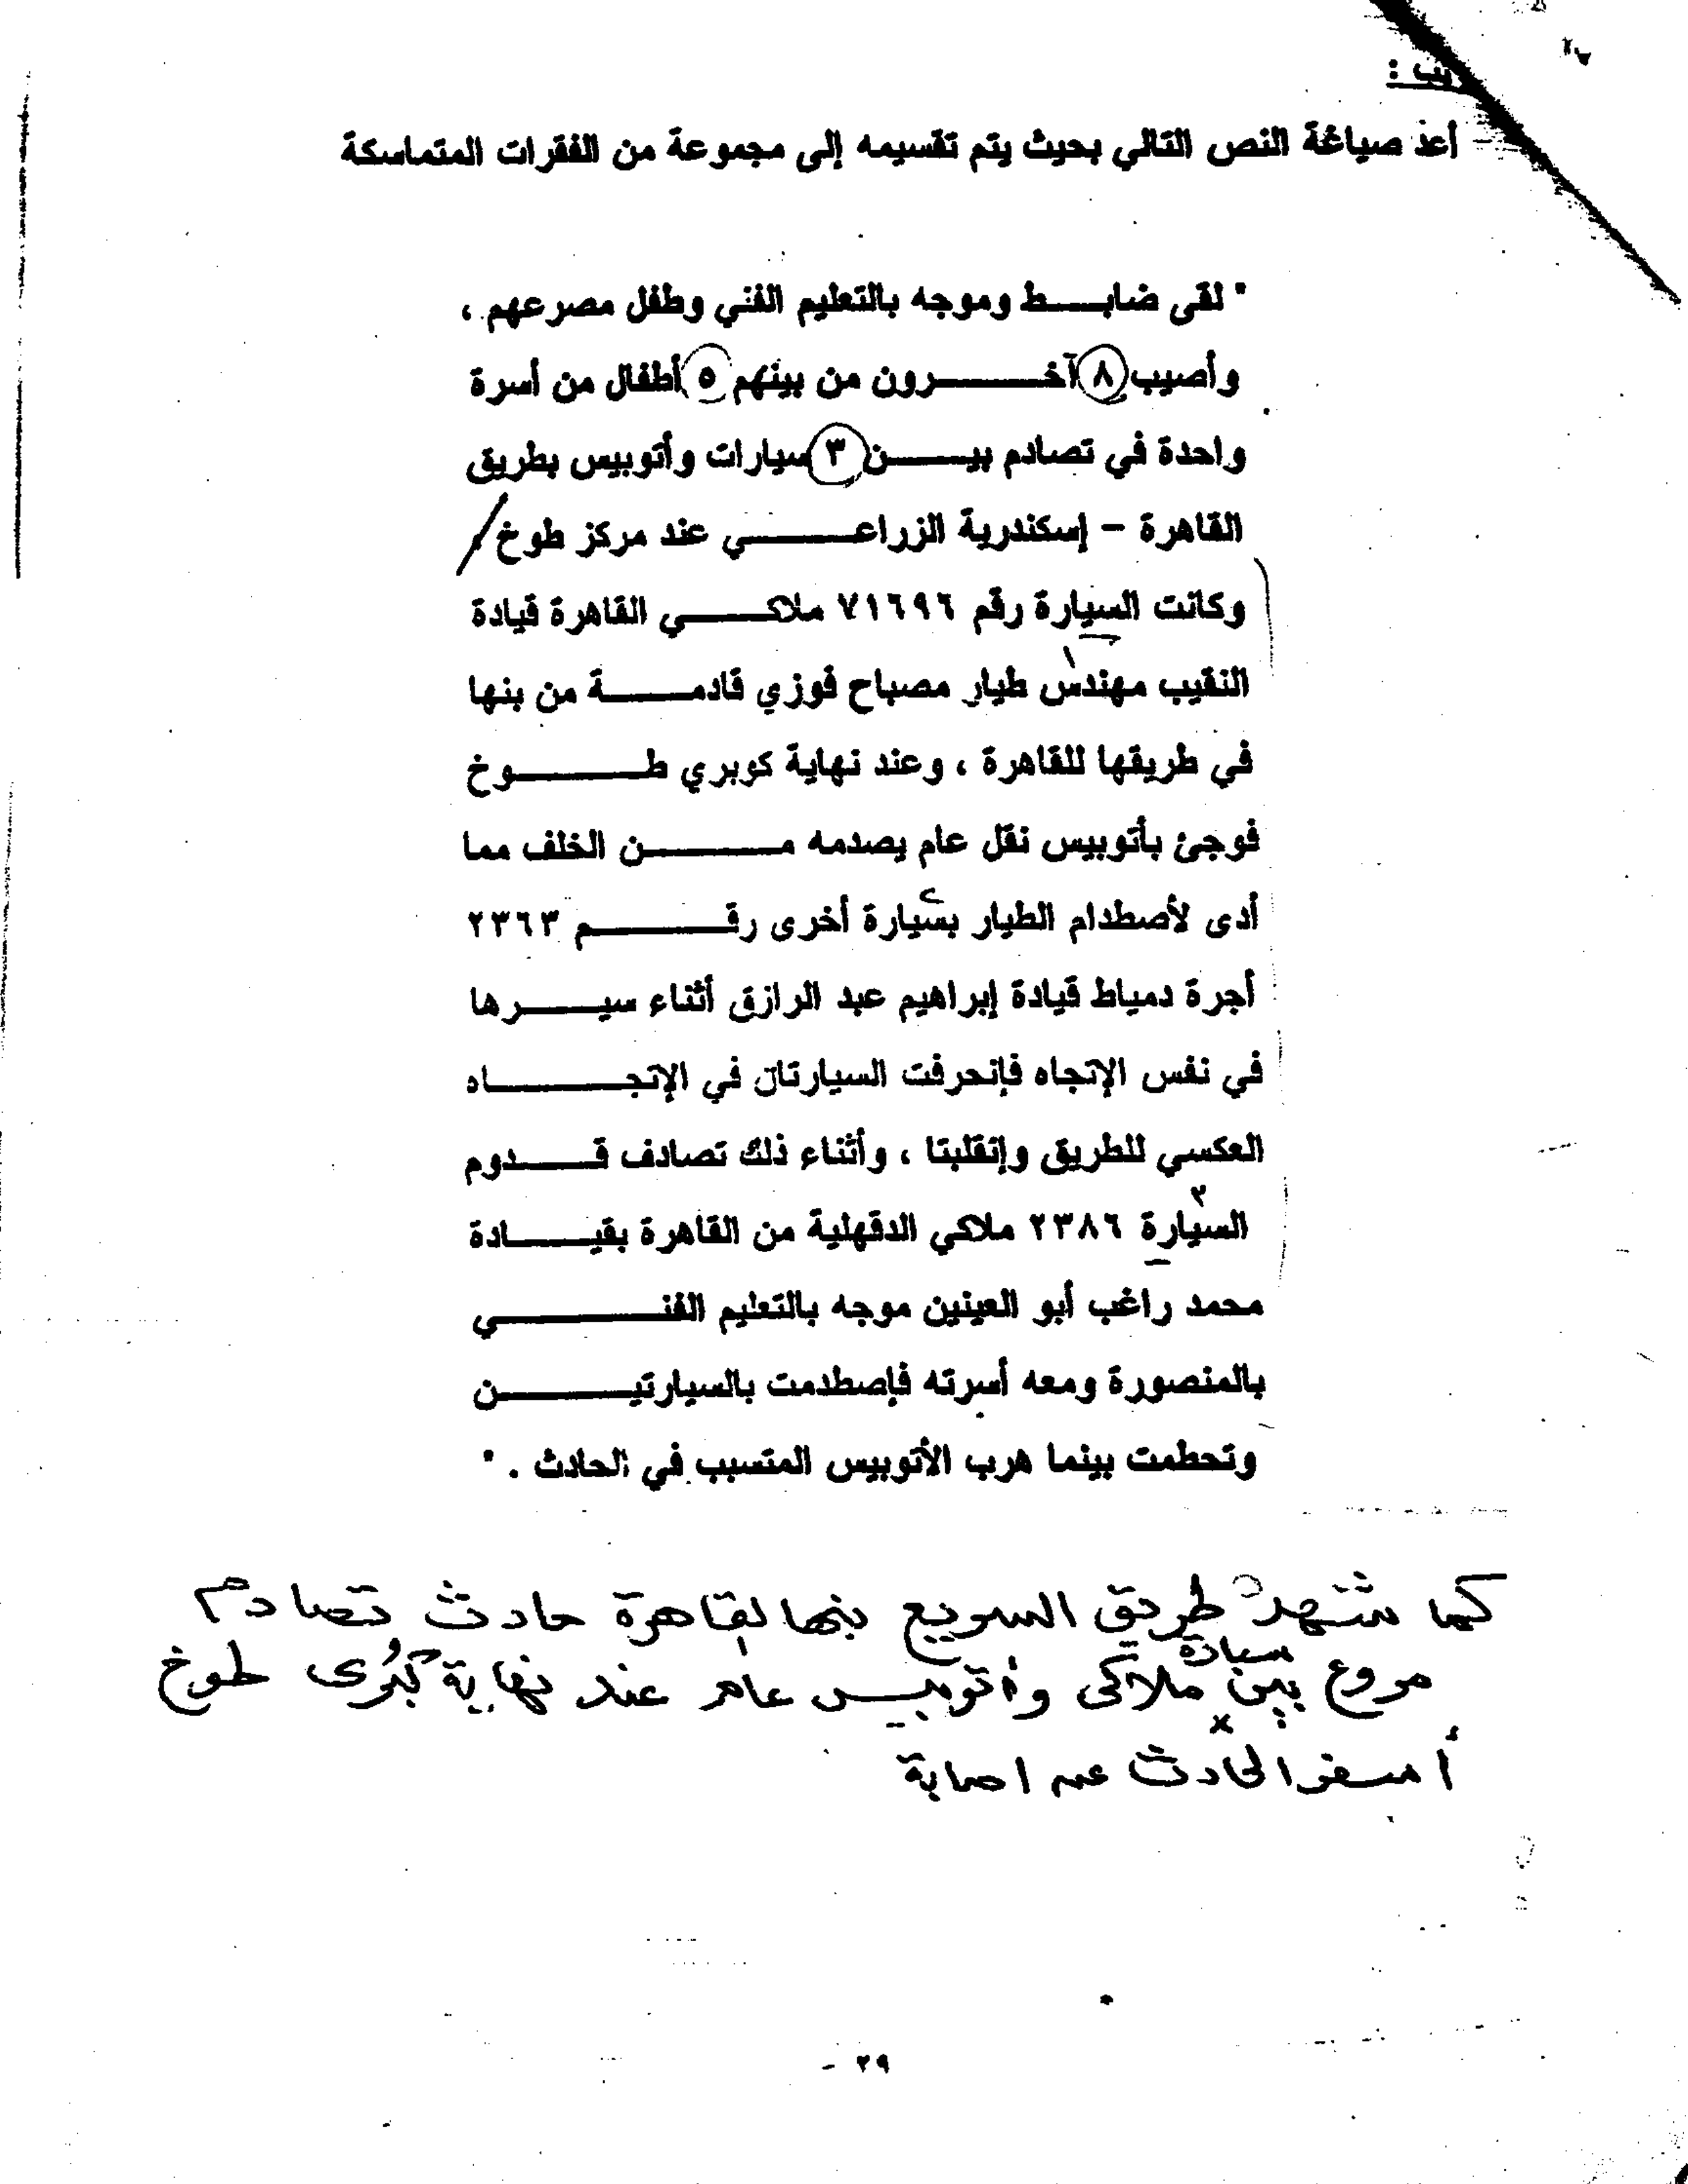 يب :
- أعد صياغة النص التالي بحيث يتم تقسيمه إلى مجموعة من الفقرات المتماسكة
" لقى ضابط وموجه بالتعليم الفني وطفل مصرعهم ،
وأصيب ٨ آخرون من بينهم ٥ أطفال من أسرة
واحدة في تصادم بين ٣ سيارات وأتوبيس بطريق
القاهرة - إسكندرية الزراعي عند مركز طوخ /
وكانت السيارة رقم ٧١٦٩٦ ملاكي القاهرة قيادة
١
النقيب مهندس طيار مصباح فوزي قادمة من بنها
في طريقها للقاهرة ، وعند نهاية كوبري طوخ
فوجئ بأتوبيس نقل عام يصدمه من الخلف مما
أدى لأصطدام الطيار بسيارة أخرى رقم ٢٣٦٣
أجرة دمياط قيادة إبراهيم عبد الرازق أثناء سيرها
في نفس الإتجاه فإنحرفت السيارتان في الإتجاه
العكسي للطريق وإنقلبتا ، وأثناء ذلك تصادف قدوم
٣
السيارة ٢٣٨٦ ملاكي الدقهلية من القاهرة بقيادة
محمد راغب أبو العينين موجه بالتعليم الفني
بالمنصورة ومعه أسرته فإصطدمت بالسيارتين
وتحطمت بينما هرب الأتوبيس المتسبب في الحادث . "
كما شهد طريق السريع بنها القاهرة حادث تصادم
سيارة
مروع بين ملاكى وأتوبيس عام عند نهاية كبرى طوخ
أسفر الحادث عن اصابة
٢٩ -